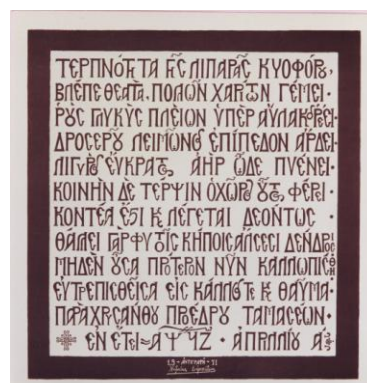 ΤΕΡΠΝΟΤΗΤΑ ΓΗC ΛΙΠΑΡΑC ΚΥΟΦΟΡΟΥ,
ΒΛΕΠΕ ΘΕΑΤΑ. ΠΟΛΩΝ ΧΑΡΙΤΩΝ ΓΕΜΕΙ·
ΡΟΥC ΓΛΥΚΥC ΠΛΕΙΟΝ ΥΠΕΡ ΑΥΛΑΚΑ ΡΕΕΙ·
ΔΡΟCΕΡΟΥ ΛΕΙΜΩΝΟC ΕΠΙΠΕΔΟΝ ΑΡΔΕΙ·
ΛΙΓΥΡΟC ΕΥΚΡΑΤΟC ΑΗΡ ΩΔΕ ΠΝΕΝΕΙ·
ΚΟΙΝΗΝ ΔΕ ΤΕΡΨΙΝ Ο ΧΩΡΟC ΟΥΤΟC, ΦΕΡΕΙ·
ΚΟΝΤΕΑ ΕCΤΙ Ϗ ΛΕΓΕΤΑΙ ΔΕΟΝΤΩC·
ΘΑΛΕΙ ΓΑΡ ΦΥΤΟΙC ΚΗΠΟΙC ΑΛCΕCΙ ΔΕΝΔΡΟΙC
ΜΗΔΕΝ ΟΥCΑ ΠΡΟΤΕΡΟΝ ΝΥΝ ΚΑΛΛΩΠΙCΘΗ
ΕΥΤΡΕΠΙCΘΕΙCΑ ΕΙC ΚΑΛΛΟC ΤΕ Ϗ ΘΑΥΜΑ·
ΠΑΡΑ ΧΡΥCΑΝΘΟΥ ΠΡΟΕΔΡΟΥ ΤΑΜΑCΕΩΝ·
ΕΝ ΕΤΕΙ ΑΨϞΖ · ΑΠΡΙΛΙΟΥ Α